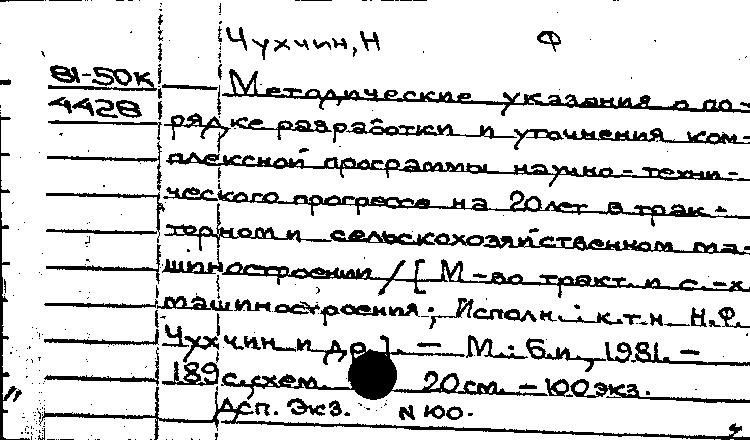 Чухчин, Н Ф
81-50К Методические указания о по-
4428 рядке разработки и уточнения ком-
плексной программы научно-техни-
ческого прогресса на 20 лет в трак-
торном и сельскохозяйственном ма-
шиностроении / [М-во тракт. и с.-х.
машиностроения; Исполн.: к.т.н. Н.Ф.
Чухчин и др.]. — М.: Б.и., 1981. —
189 с., схем. 20 см. — 100 экз.
Дсп. Экз. N 100.